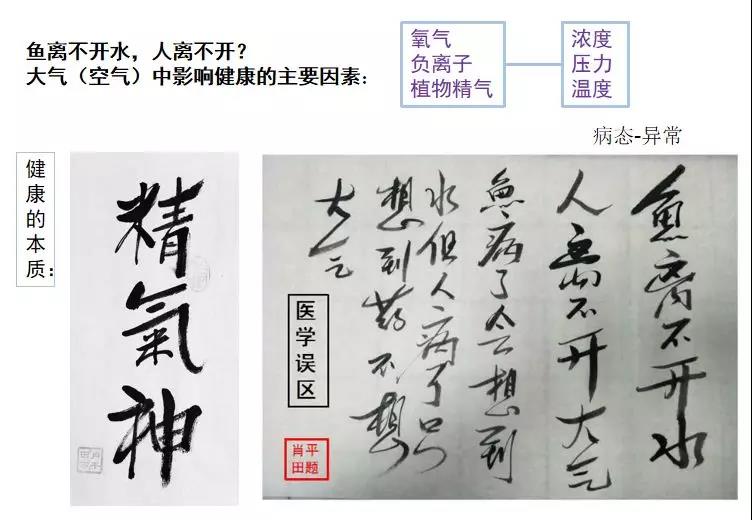 鱼离不开水，人离不开？
大气（空气）中影响健康的主要因素：
氧气
负离子
植物精气
浓度
压力
温度
病态-异常
健康的本质：
精氣神
鱼离不开水
人离不开大气
鱼病了会想到
水但人病了只
想到药不想
大气
医学误区
肖平
田题